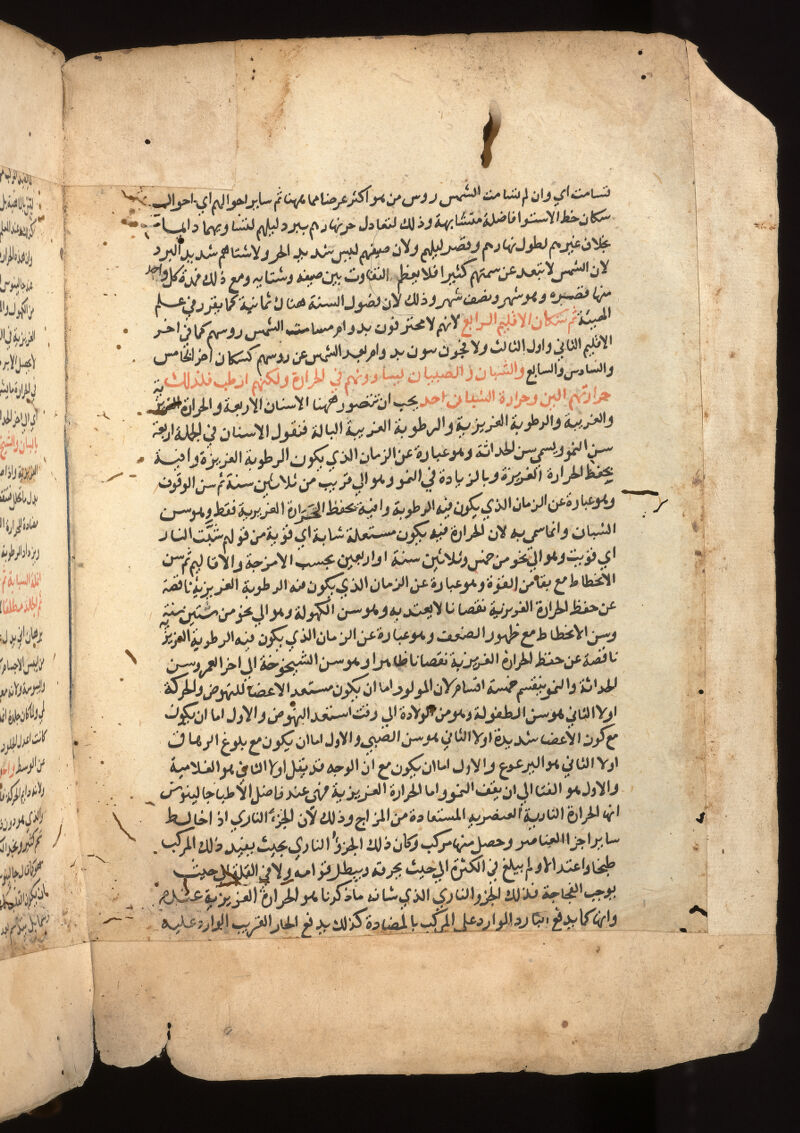 تسامت اي وان لم تسامت الشمس روس من هو اكثر عرضا مما ههنا ثم ساير احوالهم اي احوال
سكان خط الاستوا فاضلة متشابهة وذلك لتعادل حر نهارهم ببرد ليلهم لتساويهما دايما
بخلاف غيرهم لطول نهارهم وقصر ليلهم ولان صيفهم ليس شديد الحر ولا شتاهم شديد البرد
لان الشمس لا تبعد عن سمتهم كثيرا فلا يعظم التفاوت بين صيفه وشتايه ومع ذلك فمدة كل واحد
منها قصيره وهو شهر ونصف شهر وذلك لان فصول السنة هناك ثمانية كما يقرر في علم
الهيئة ثم سكان الاقليم الرابع لانهم لا محترقون بدوام مسامتة الشمس روسهم كما في اخر
الاقليم الثاني واول الثالث ولا فجون بدوام بعد الشمس عن روسهم كسكان اخر الخامس
والسادس والسابع والشبان والصبيان يساوونهم في الحرارة ولكنهم ارطب فلذلك
حرارتهم الين وحرارة الشبان احد يجب ان تتصور ههنا الاسنان الاربعة والحرارة الغريزية
والغريبة والرطوبة الغريزية والرطوبة الغريبة البالة فنقول الاسنان في الجملة اربعة
سن النمو ويسمى سن الحداثة وهو عبارة عن الزمان الذي يكون الرطوبة الغريزة وافية
بحفظ الحرارة الغريزة وبالزيادة في النمو وهو الي قريب من ثلاثين سنة ثم سن الوقوف
وهو عبارة عن الزمان الذي يكون فيه الرطوبة وافية بحفظ الحرارة الغريزية فقط وهو سن
الشبان وانما سمي به لان الحرارة فيه يكون مستعلة شابة اي قوية من قولهم شبت النار
اي قويت وهو الي نحو من خمس وثلاثين سنة او اربعين بحسب الامزجة والاقاليم ثم سن
الانحطاط مع بقاء من القوة وهو عبارة عن الزمان الذي يكون فيه الرطوبة الغريزية ناقصة
عن حفظ الحرارة الغريزية نقصانا لا يعتد به وهو سن الكهولة وهو الي نحو من ستين سنة
وسن الانحطاط مع ظهور الضعف وهو عبارة عن الزمان الذي يكون فيه الرطوبة الغريزية
ناقصة عن حفظ الحرارة الغريزية نقصانا ظاهرا وهو سن الشيخوخة الي اخر العمر وسن
الحداثة والنمو ينقسم خمسة اقسام لان المولود اما ان يكون مستعد الاعضا للنهوض والحركة
اولا الثاني هو سن الطفولة وهو من الولادة الي وقت استعد النهوض والاول اما ان يكون
مع كون الاعضا شديدة اولا الثاني هو سن الصبي والاول اما ان يكون مع بلوغ الرهاق
اولا الثاني هو اليرعوع والاول اما ان يكون مع ان الوجه قد بقل اولا الثاني هو الغلامية
والاول هو الفتا الي ان يقف النمو واما الحرارة الغريزية فهي عند فاضل الاطبا جالينوس
انها الحرارة النارية العنصرية المستعادة من المزاج وذلك لان الجزء الناري اذا خالط
ساير اجزاا العناصر وحصل منها مركب وكان ذلك الجزؤ الناري بحيث يفيد ذلك المركب
طبخا واعتدالا ولم يبلغ في الكثرة الي حيث يحرقه ويبطل قوامه ولا في القلة الي حيث
يوجب الفجاجة فذلك الجزو الناري الذي شانه ما ذكرنا هو الحرارة الغريزية عنده
وانها كما يدفع البارد الوارد على المركب بالمضادة كذلك يدفع الحار الغريب الوارد عليه